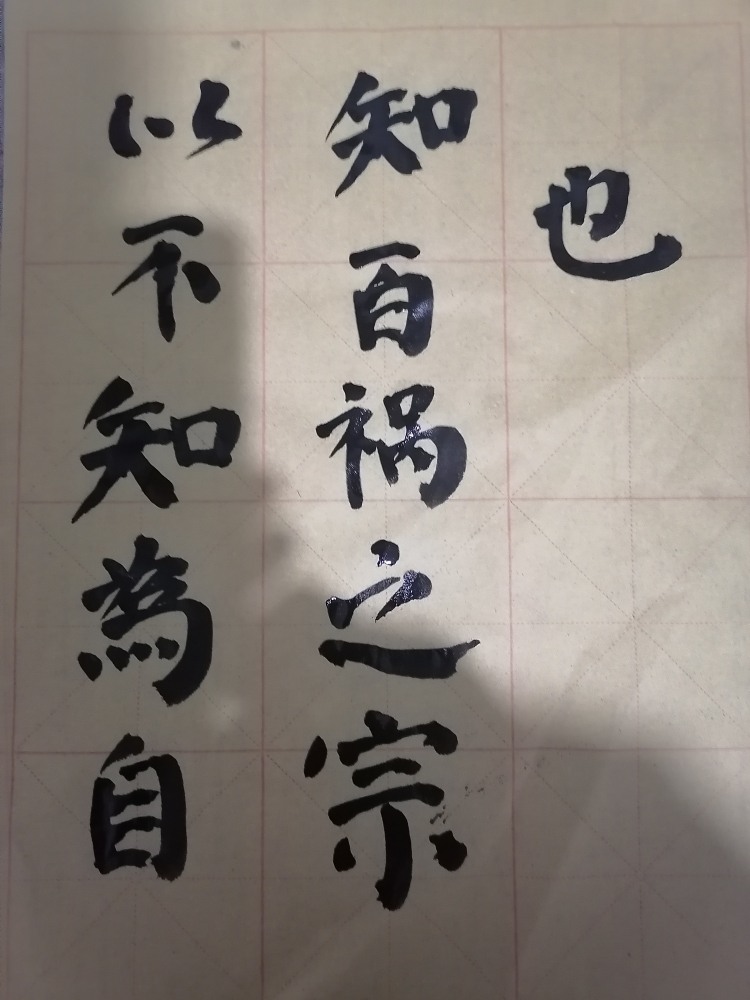 以不知為自
知百祸之宗
也